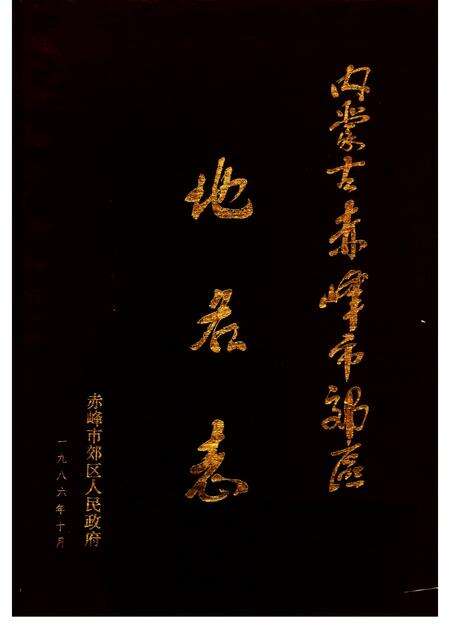 内蒙古赤峰市郊區
地名志
赤峰市郊区人民政府
一九八六年十月